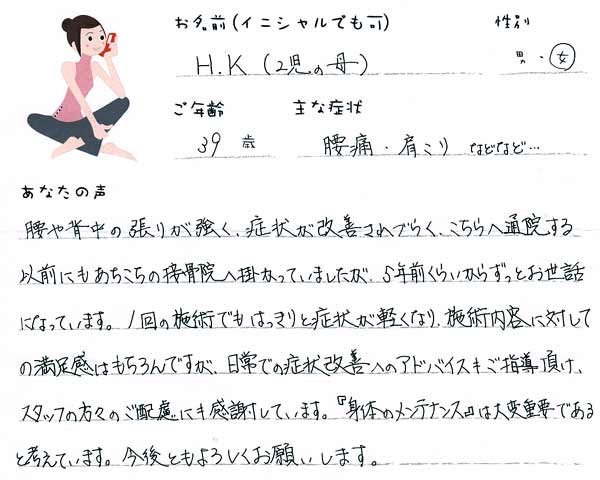 お名前(イニシャルでも可)
性別
H.K (2児の母)
男・女
ご年齢
主な症状
39 歳
腰痛・肩こり などなど…
あなたの声
腰や背中の張りが強く、症状が改善されづらく、こちらへ通院する
以前にもあちこちの接骨院へ掛かっていましたが、5年前くらいからずっとお世話
になっています。1回の施術でもはっきりと症状が軽くなり、施術内容に対して
の満足感はもちろんですが、日常での症状改善へのアドバイスもご指導頂け、
スタッフの方々のご配慮にも感謝しています。『身体のメンテナンス』は大変重要である
と考えています。今後ともよろしくお願いします。